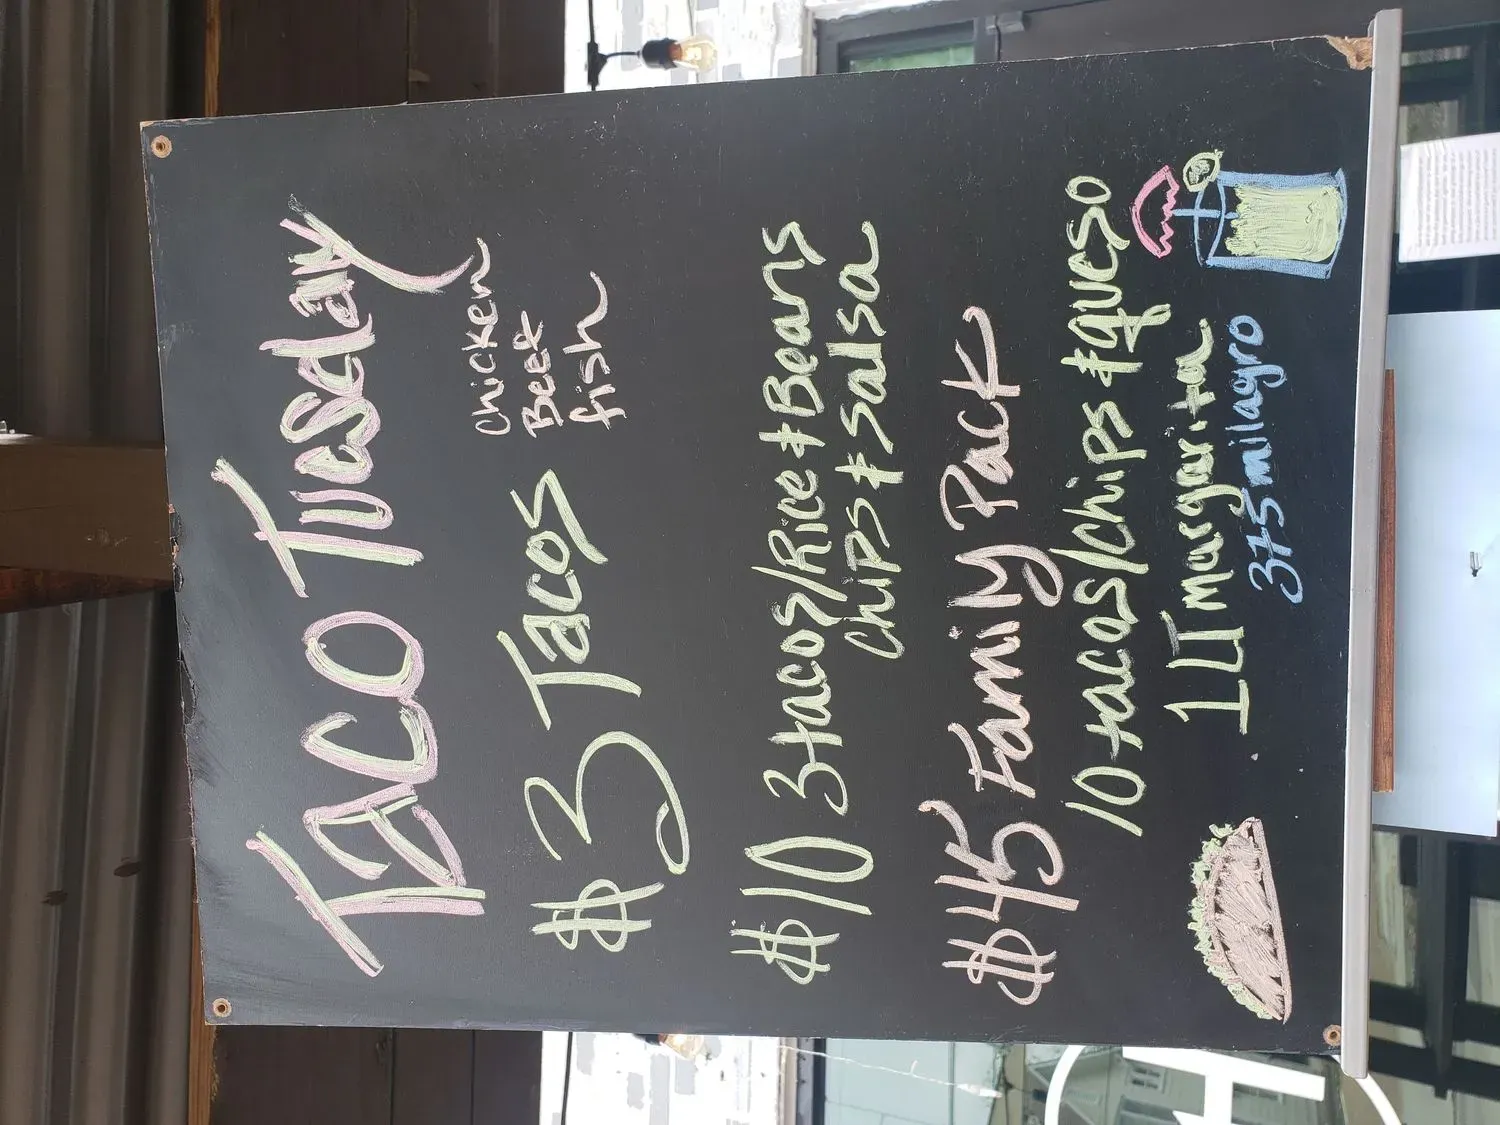 Taco Tuesday
$3 Tacos
Chicken
Beef
fish
$10 3 tacos/Rice & Beans
chips & salsa
$45 Family Pack
10 tacos/chips & queso
1 LT margarita
375 milagro